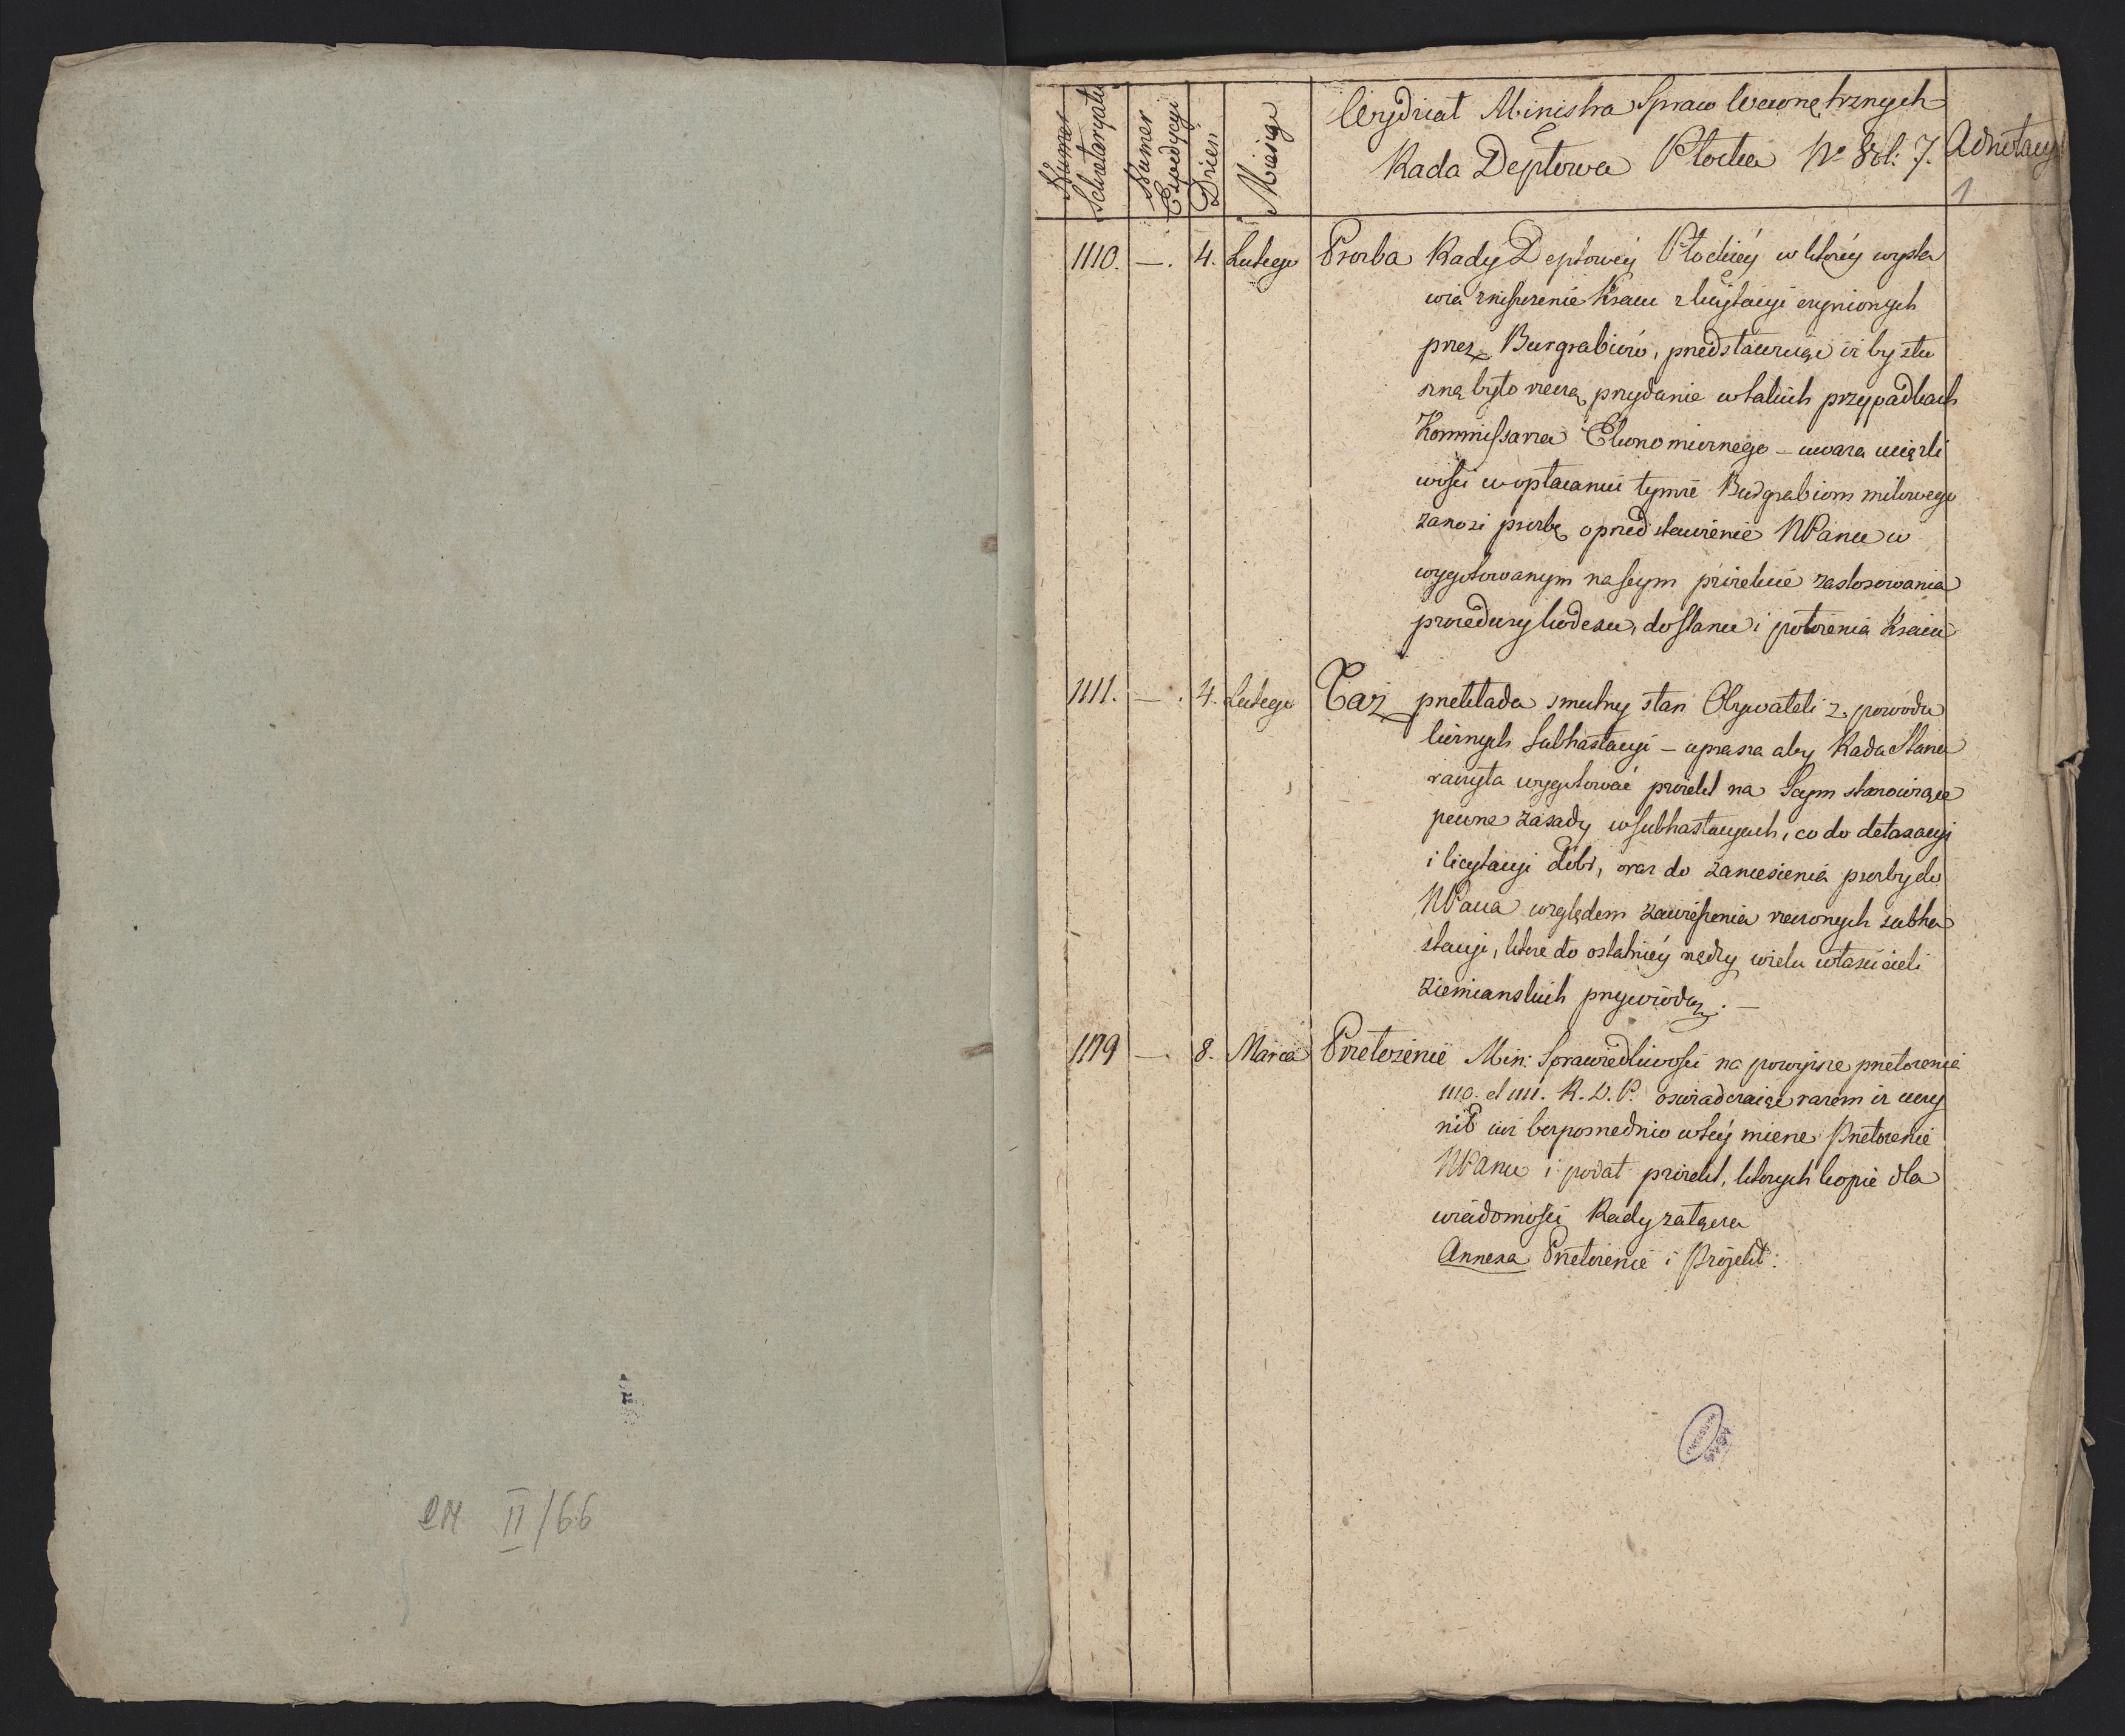 Numer Sekretaryatu
Numer Expedycyi
Dzień
Miesiąc
Wydział Ministra Spraw Wewnętrznych
Rada Deptowa Płocka No Vol: 7.
Adnotacye
1
1110. — . 4. Lutego Prozba Rady Deptowéy Płockiéy w któréy wysta
wia zniszczenie Kraiu z licytacyi czynionych
przez Burgrabiów, przedstawuiąc iż by słu
szną było rzeczą przydanie w takich przypadkach
Kommissarza Ekonomicznego — uważa uciążli
wości w opłacaniu tymże Budgrabiom milowego
zanosi prozbę o przedstawienie NPanu w
wygotowanym na seym proiekcie zastosowania
procedury kodexu, do stanu i położenia Kraiu
1111. — . 4. Lutego Taż przekłada smutny stan Obywateli z powodu
licznych subhastacyi — uprasza aby Rada Stanu
raczyła wygotować proiekt na Seym stanowiące
pewne zasady w subhastacyach, co do detaxacyi
i licytacyi dóbr, oraz do zaniesienia prozby do
NPana względem zawieszenia rzeczonych subha
stacyi, które do ostatniéy nędzy wielu właścicieli
ziemianskich przywiodą. —
1179 — . 8. Marca Przełożenie Min: Sprawiedliwości na powyższe przełożenia
1110. et 1111. R. D. P. oświadczaiąc razem iż uczy
nił iuż bezpośrednio w téy mierze Przełożenie
NPanu i podał proiekt, których kopie dla
wiadomości Rady załącza
Annexa Przełożenie i Projekt.
II/66